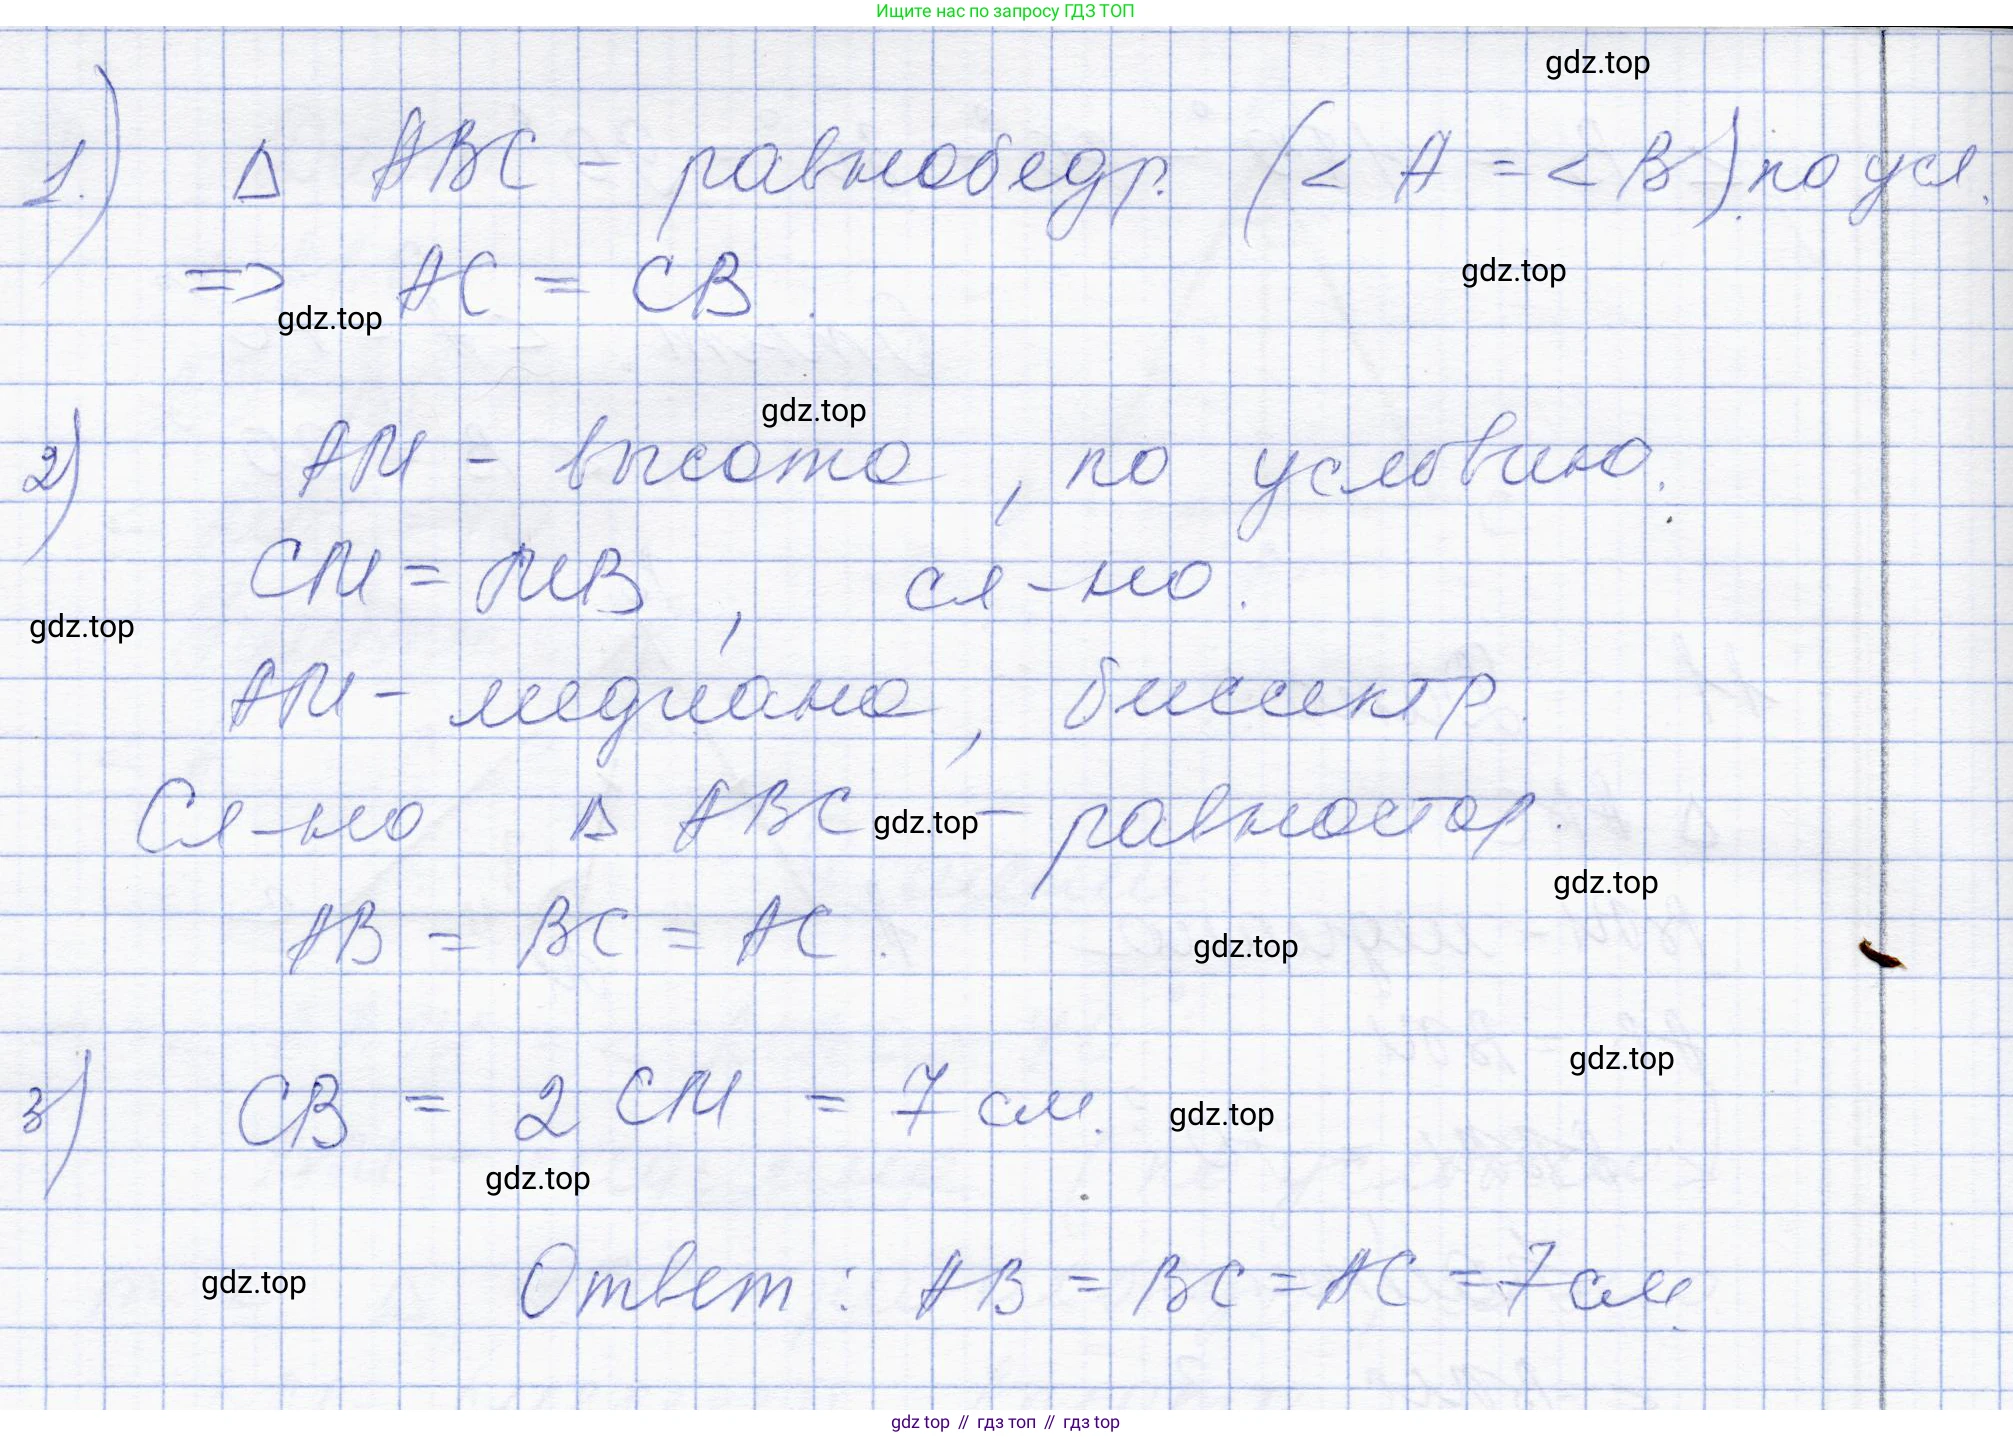 Ищите нас по запросу ГДЗ ТОП
gdz.top
1.) Δ ABC - равнобедр. (< A = < B) по усл.
=> AC = CB.
gdz.top
gdz.top
gdz.top
2) AM - высота, по условию.
CM = MB, сл-но.
gdz.top
AM - медиана, биссектр.
Сл-но Δ ABC - равностор.
gdz.top
gdz.top
AB = BC = AC.
gdz.top
gdz.top
3) CB = 2 CM = 7 см.
gdz.top
gdz.top
gdz.top
Ответ: AB = BC = AC = 7 см.
gdz top // гдз топ // гдз top